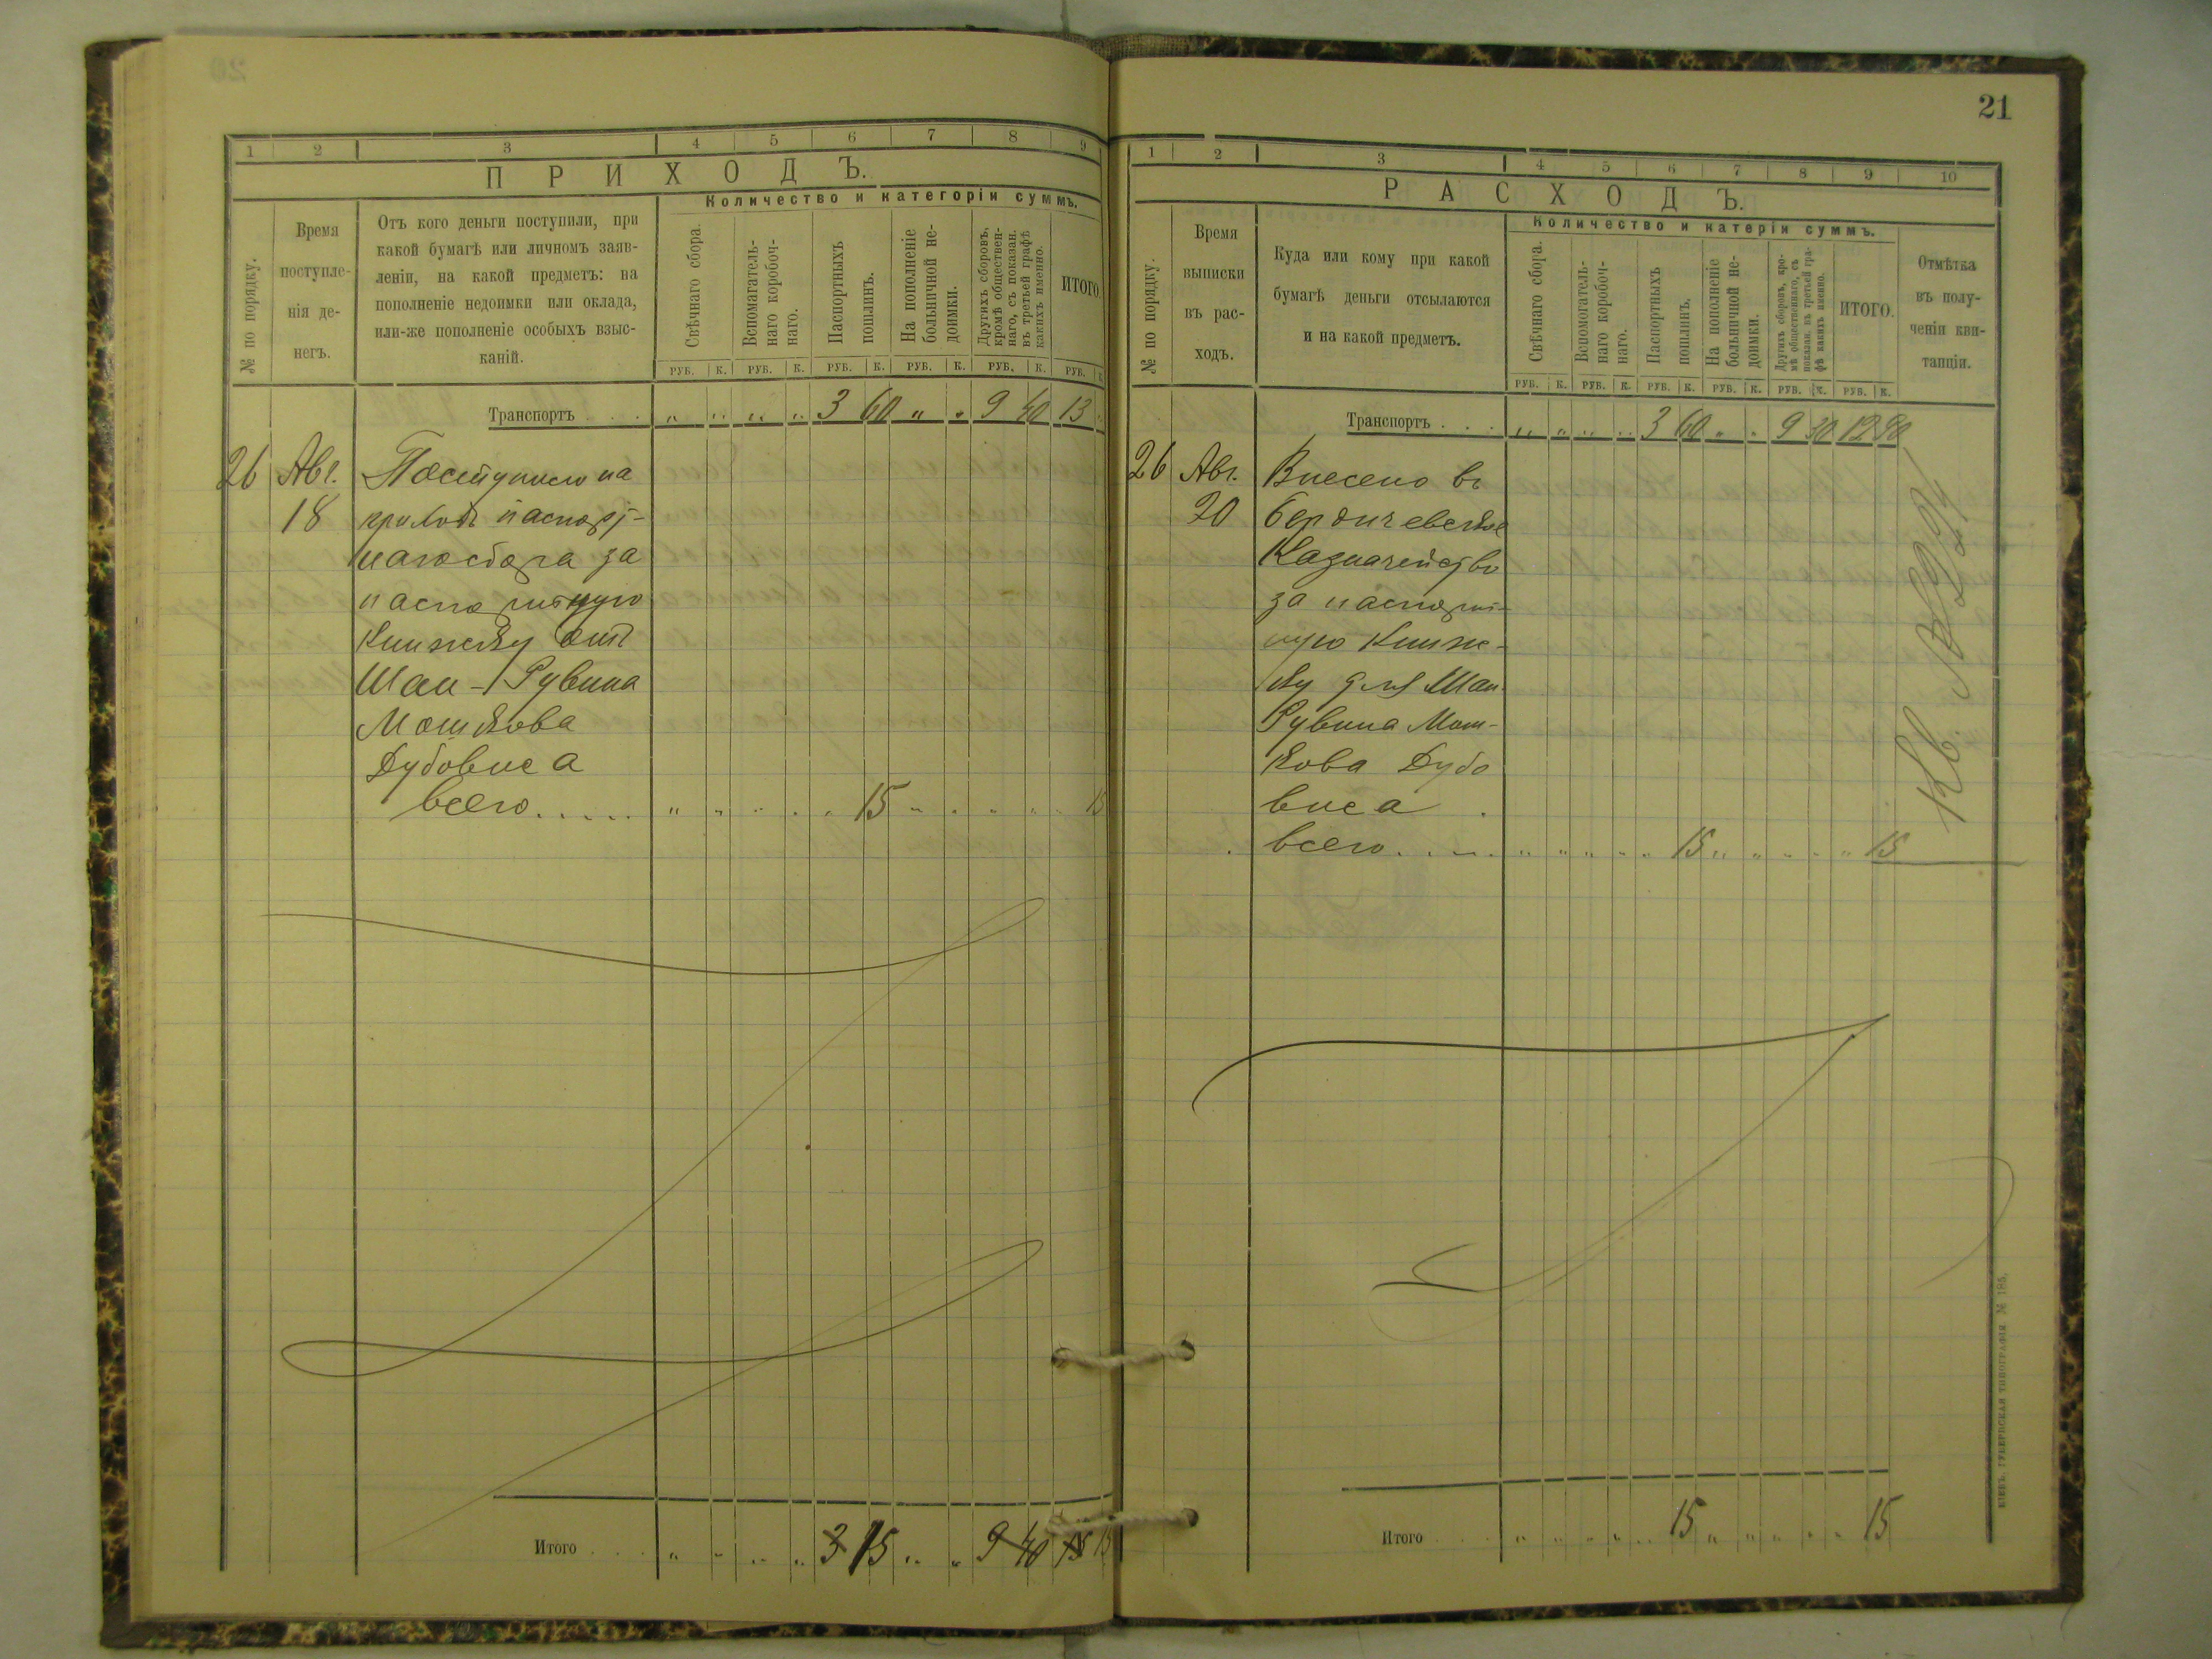 20
1 2 3 4 5 6 7 8 9
ПРИХОДЪ.
Количество и категорій суммъ.
№ по порядку.
Время
поступле-
нія де-
негъ.
Отъ кого деньги поступили, при
какой бумагѣ или личномъ заяв-
леніи, на какой предметъ: на
пополненіе недоимки или оклада,
или-же пополненіе особыхъ взыс-
каній.
Свѣчнаго сбора.
Вспомагатель-
наго коробоч-
наго.
Паспортныхъ
пошлинъ.
На пополненіе
больничной не-
доимки.
Другихъ сборовъ,
кромѣ обществен-
наго, съ показан.
въ третьей графѣ
какихъ именно.
ИТОГО
РУБ. К. РУБ. К. РУБ. К. РУБ. К. РУБ. К. РУБ. К.
Транспортъ . . . „ „ „ „ 3 60 „ „ 9 40 13 „
26 Авг. Поступило на
18 приходъ паспорт-
наго сбора за
паспортную
Книжку отъ
Шаи-Рувина
Мошкова
Дубовиса
всего..... „ „ „ „ „ 15 „ „ „ „ „ 15
Итого . . . „ „ „ „ 3 15 „ „ 9 40 13 15
21
1 2 3 4 5 6 7 8 9 10
РАСХОДЪ.
Количество и катеріи суммъ.
№ по порядку.
Время
выписки
въ рас-
ходъ.
Куда или кому при какой
бумагѣ деньги отсылаются
и на какой предметъ.
Свѣчнаго сбора.
Вспомогатель-
наго коробоч-
наго.
Паспортныхъ
пошлинъ.
На пополненіе
больничной не-
доимки.
Другихъ сборовъ, кро-
мѣ общественнаго, съ
показан. въ третьей гра-
фѣ какихъ именно.
ИТОГО.
Отмѣтка
въ полу-
ченіи кви-
танціи.
РУБ. К. РУБ. К. РУБ. К. РУБ. К. РУБ. К. РУБ. К.
Транспортъ . . . „ „ „ „ 3 60 „ „ 9 30 12 90
26 Авг. Внесено въ
20 Бердичевское
Казначейство
за паспорт-
ную Книж-
ку для Шаи
Рувина Мош-
кова Дубо
виса
всего..... „ „ „ „ „ 15 „ „ „ „ „ 15
Кв
Итого . . . „ „ „ „ „ 15 „ „ „ „ „ 15
КІЕВЪ. ГУБЕРНСКАЯ ТИПОГРАФІЯ. № 185.